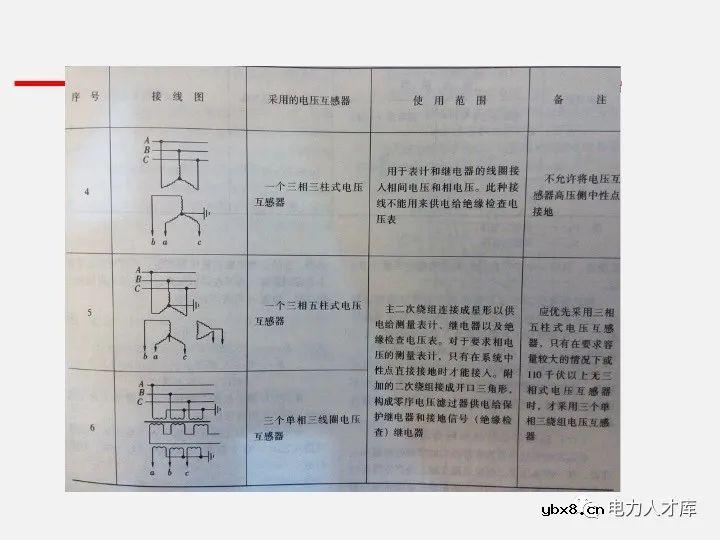 序 号 接 线 图 采用的电压互感器 使 用 范 围 备 注
4
A
B
C
b a c
一个三相三柱式电压
互感器
用于表计和继电器的线圈接
入相间电压和相电压。此种接
线不能用来供电给绝缘检查电
压表
不允许将电压互
感器高压侧中性点
接地
5
A
B
C
b a c
一个三相五柱式电压
互感器
主二次绕组连接成星形以供
电给测量表计、继电器以及绝
缘检查电压表。对于要求相电
压的测量表计，只有在系统中
性点直接接地时才能接入。附
加的二次绕组接成开口三角形，
构成零序电压滤过器供电给保
护继电器和接地信号（绝缘检
查）继电器
应优先采用三相
五柱式电压互感
器，只有在要求容
量较大的情况下或
110千伏以上无三
相式电压互感器
时，才采用三个单
相三绕组电压互感
器
6
A
B
C
a b c
三个单相三线圈电压
互感器
ybx8.cn
电力人才库